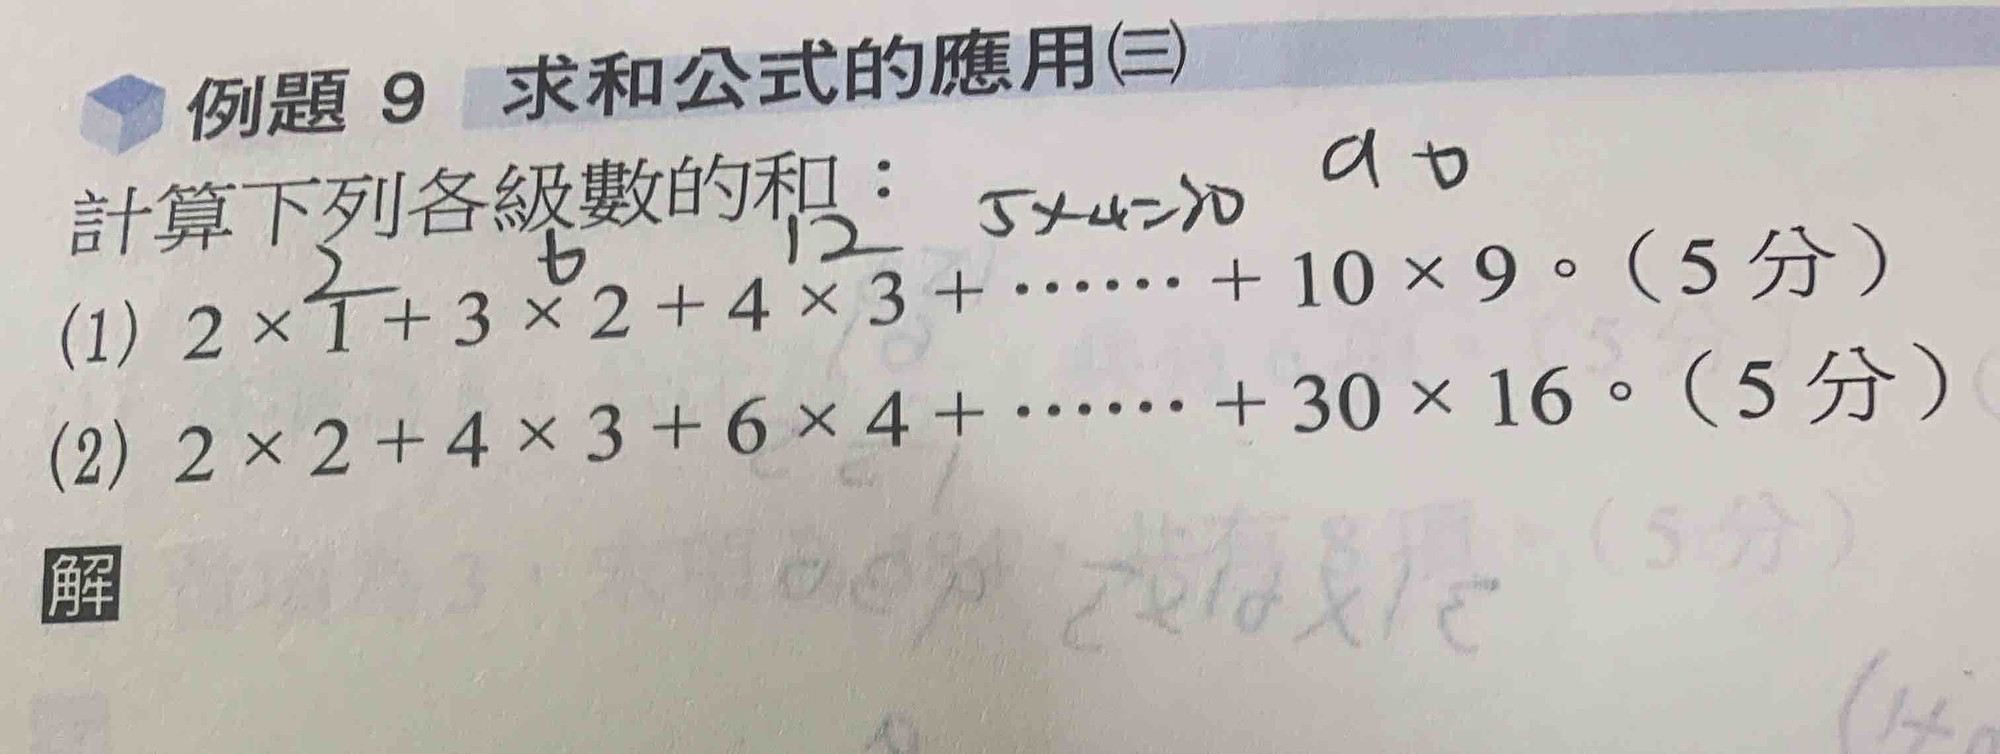 例題 9 求和公式的應用㈢
計算下列各級數的和：
5×4=20
a b
2 6 12
(1) 2 × 1 + 3 × 2 + 4 × 3 + ⋯⋯ + 10 × 9。（5 分）
(2) 2 × 2 + 4 × 3 + 6 × 4 + ⋯⋯ + 30 × 16。（5 分）
解